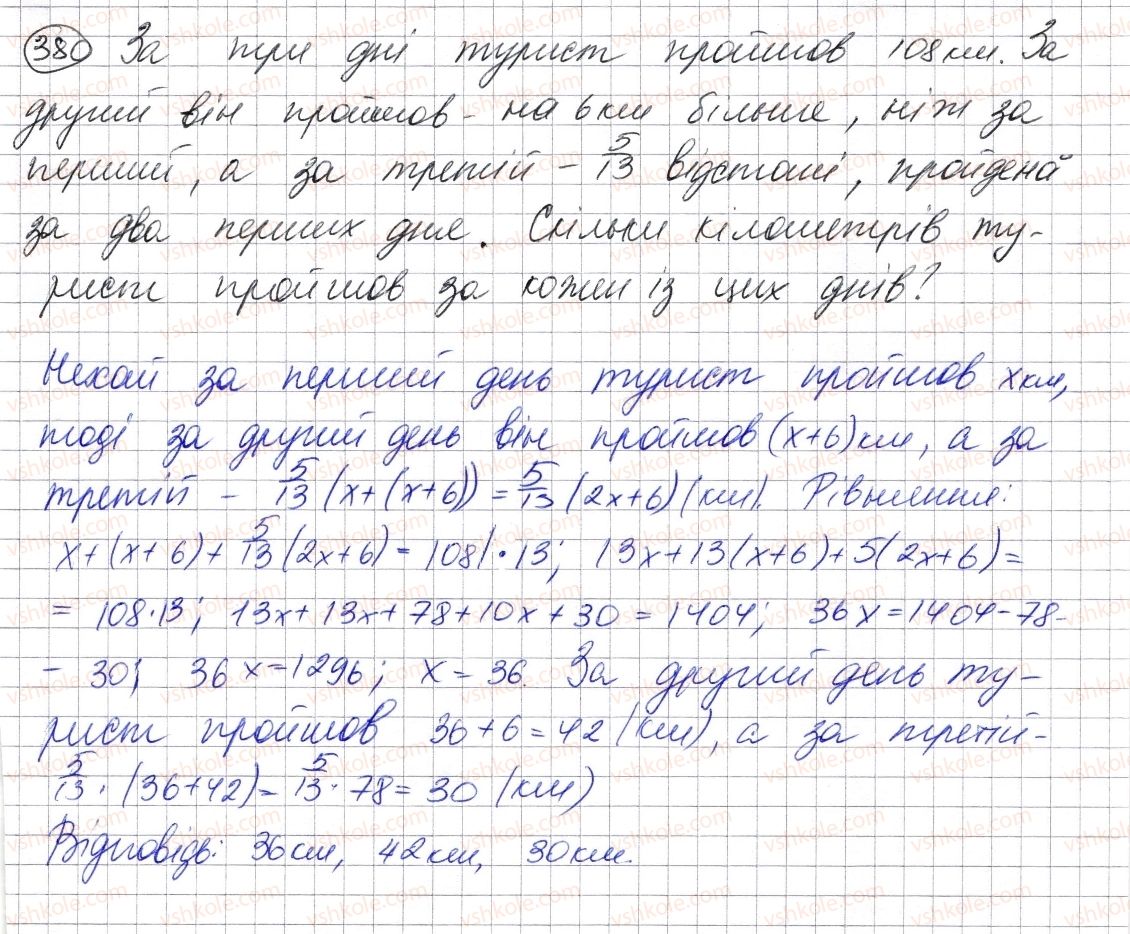 380 За три дні турист пройшов 108 км. За
другий він пройшов - на 6 км більше, ніж за
перший, а за третій - 5/13 відстані, пройденої
за два перших дня. Скільки кілометрів ту-
рист пройшов за кожен із цих днів?
Нехай за перший день турист пройшов x км,
тоді за другий день він пройшов (x+6) км, а за
третій - 5/13 (x+(x+6)) = 5/13 (2x+6) (км). Рівняння:
x+(x+6)+5/13(2x+6)=108|·13; 13x+13(x+6)+5(2x+6)=
= 108·13; 13x+13x+78+10x+30=1404; 36x=1404-78-
- 30; 36x=1296; x=36. За другий день ту-
рист пройшов 36+6=42 (км), а за третій-
5/13 · (36+42)= 5/13 · 78=30 (км)
Відповідь: 36 км, 42 км, 30 км.